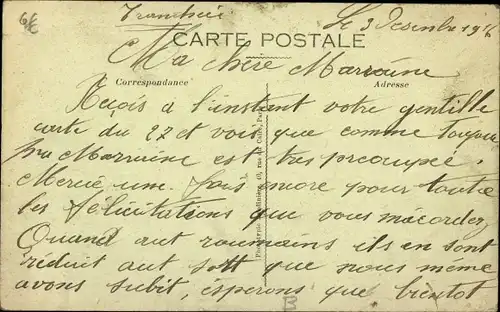 6€
Tranchée Le 3 Desembre 1916
CARTE POSTALE
Ma chère Marraine
Correspondance Adresse
Reçois a l'instant votre gentille
carte du 27 et vois que comme toujour
ma Marraine est tres preoucpée.
Mercie une fois encore pour toute
les félicitations que vous m'acorder
Quand aut roumains ils en sont
réduit aut sort que nous même
avons subit, esperons que bientot
B